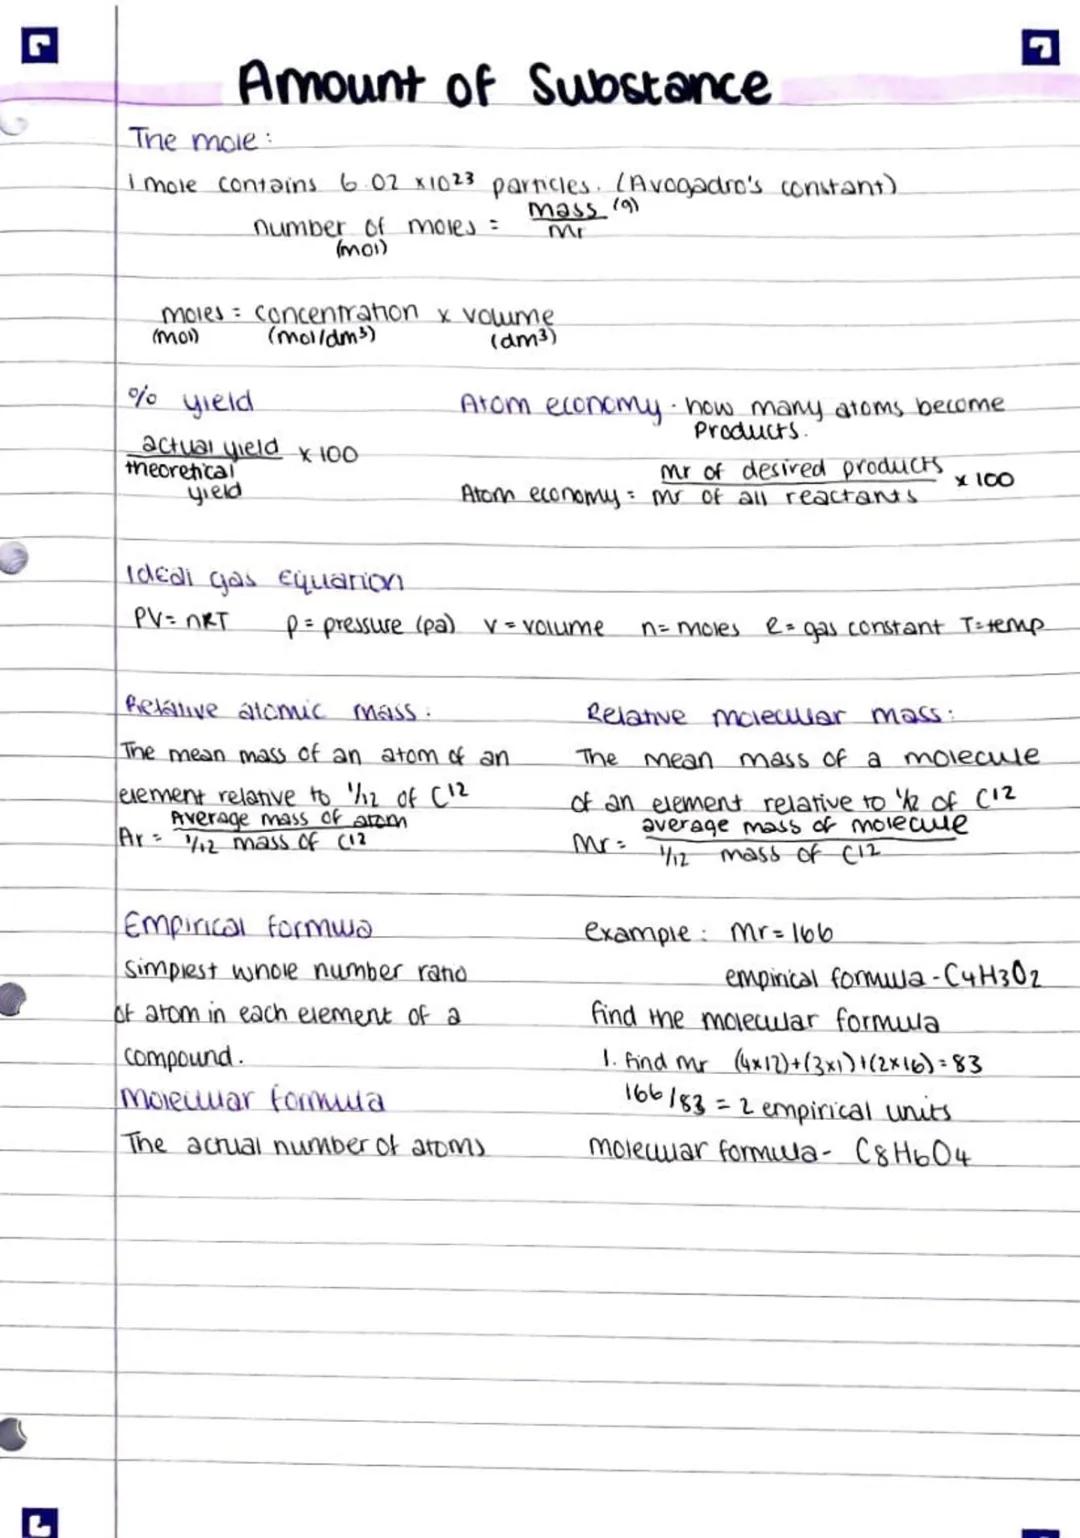 Amount of Substance
The mole:
1 mole contains 6.02 x10²³ particles. (Avogadro's constant)
number of moles = mass (g)
(mol) Mr
moles = concentration x volume
(mol) (mol/dm³) (dm³)
% yield
actual yield x 100
theoretical
yield
Atom economy - how many atoms become
Products.
Atom economy = Mr of desired products x 100
Mr of all reactants
Ideal gas equation
PV = nRT p = pressure (pa) v = volume n = moles R = gas constant T = temp
Relative atomic mass:
The mean mass of an atom of an
element relative to 1/12 of C¹²
Ar = Average mass of atom
1/12 mass of C12
Relative molecular mass:
The mean mass of a molecule
of an element relative to 1/12 of C¹²
Mr = average mass of molecule
1/12 mass of C12
Empirical formula
simplest whole number ratio
of atom in each element of a
compound.
Molecular formula
The actual number of atoms
example: Mr = 166
empirical formula - C4H3O2
find the molecular formula
1. find Mr (4x12)+(3x1)+(2x16) = 83
166/83 = 2 empirical units
molecular formula - C8H6O4